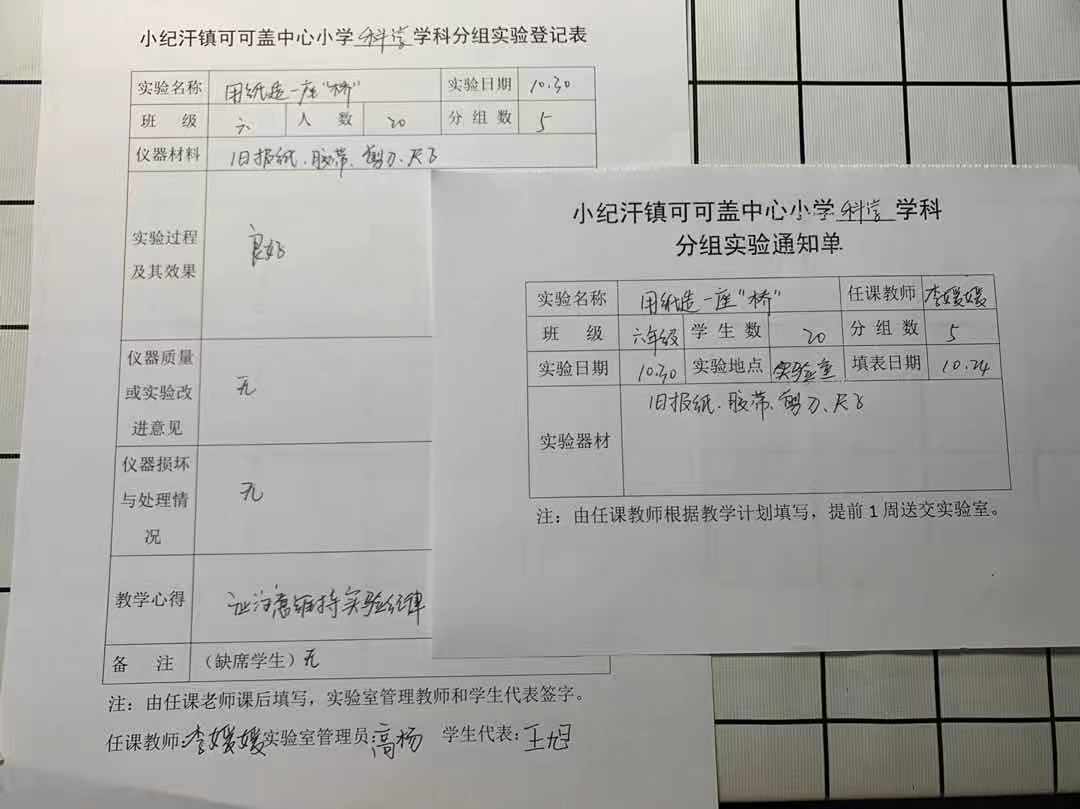 小纪汗镇可可盖中心小学科学学科分组实验登记表
实验名称 用纸造一座“桥” 实验日期 10.30
班 级 六 人 数 20 分组数 5
仪器材料 旧报纸、胶带、剪刀、尺子
实验过程及其效果 良好
仪器质量或实验改进意见 无
仪器损坏与处理情况 无
教学心得 注意维持实验纪律
备 注 （缺席学生）无
注：由任课老师课后填写，实验室管理教师和学生代表签字。
任课教师:李媛媛 实验室管理员:高杨 学生代表:王旭
小纪汗镇可可盖中心小学科学学科
分组实验通知单
实验名称 用纸造一座“桥” 任课教师 李媛媛
班 级 六年级 学生数 20 分组数 5
实验日期 10.30 实验地点 实验室 填表日期 10.24
实验器材 旧报纸、胶带、剪刀、尺子
注：由任课教师根据教学计划填写，提前1周送交实验室。